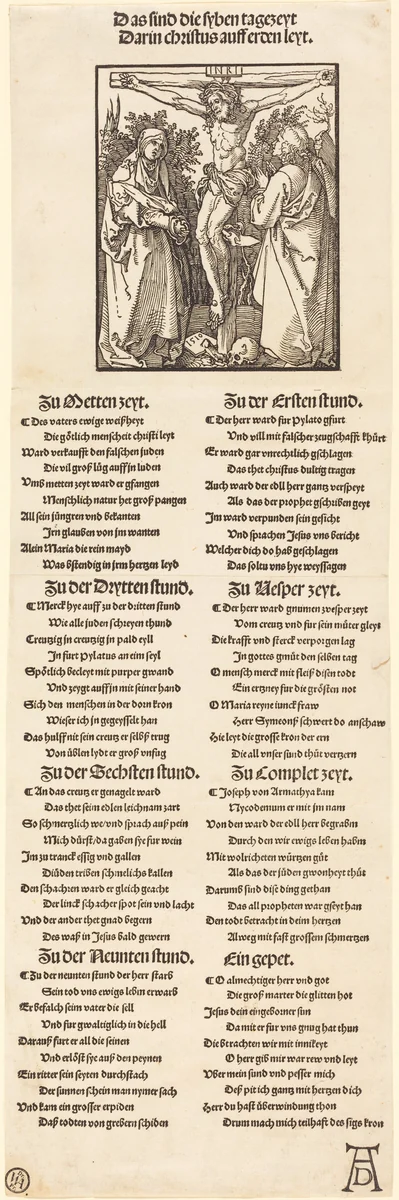 Das sind die syben tagezeyt
Darin christus auff erden leyt.
INRI
1510
Zu Metten zeyt.
Des vaters ewige weißheyt
Die götlich menscheit christi leyt
Ward verkaufft den falschen juden
Die vil groß lüg auff jn luden
Vmb metten zeyt ward er gfangen
Menschlich natur het groß pangen
All sein jüngren vnd bekanten
Jrn glauben von jm wanten
Alein Maria die rein mayd
Was bstendig in jrm hertzen leyd
Zu der Drytten stund.
Merck hye auff zu der dritten stund
Wie alle juden schreyen thund
Creutzig jn creutzig jn pald eyl
Jn furt Pylatus an eim seyl
Spötlich becleyt mit purper gwand
Vnd zeygt auff jn mit seiner hand
Sich den menschen in der dorn kron
Wie ser ich jn gegeysselt han
Das hulff nit sein creutz er selbß trug
Von üblen lydt er groß vnfug
Zu der Sechsten stund.
An das creutz er genagelt ward
Das thet seim edlen leichnam zart
So schmertzlich we vnd sprach auß pein
Mich dürst da gaben sye fur wein
Jm zu tranck essig vnd gallen
Die jüden triben schmelichs kallen
Den schachren ward er gleich geacht
Der linck schacher spot sein vnd lacht
Vnd der ander thet gnad begern
Des waß jn Jesus bald gewern
Zu der Neunten stund.
Zu der neunten stund der herr starb
Sein tod vns ewigs lebn erwarb
Er befalch seim vater die sell
Vnd fur gwaltiglich in die hell
Darauß furt er all die seinen
Vnd erlöst sye auß den peynen
Ein ritter sein seyten durchstach
Der sunnen schein man nymer sach
Vnd kam ein grosser erpiden
Daß todten von grebern schiden
Zu der Ersten stund.
Der herr ward fur Pylato gfurt
Vnd vill mit falscher zeugschafft khürt
Er ward gar vnrechtlich gschlagen
Das thet christus dultig tragen
Auch ward der edll herr gantz verspeyt
Als das der prophet gschriben geyt
Jm ward verpunden sein gesicht
Vnd sprachen Jesus vns bericht
Welcher dich do hab geschlagen
Das soltu vns hye weyssagen
Zu Vesper zeyt.
Der herr ward gnumen zvesper zeyt
Vom creutz vnd fur sein müter gleyt
Die krafft vnd sterck verporgen lag
Jn gottes gmüt den selben tag
O mensch merck mit fleiß disen todt
Ein ertzney fur die grösten not
O Maria reyne junckfraw
Herr Symeonß schwert do anschaw
Hie leyt die grosse kron der ern
Die all vnser sund thüt vertzern
Zu Complet zeyt.
Joseph von Armathya kam
Nycodemum er mit jm nam
Von den ward der edll herr begrabm
Durch den wir ewigs leben habm
Mit wolrichten würtzen güt
Als das der jüden gwonheyt thüt
Darumb sind dise ding gethan
Das all propheten war gseyt han
Den todt betracht in deim hertzen
Alweg mit fast grossem schmertzen
Ein gepet.
O almechtiger herr vnd got
Die groß marter die glitten hot
Jesus dein eingeborner sun
Da mit er fur vns gnug hat thun
Die betrachten wir mit innikeyt
O herr gib mir war rew vnd leyt
Vber mein sund vnd pesser mich
Deß pit ich gantz mit hertzen dich
Herr du hast überwindung thon
Drum mach mich teilhaft des sigs kron
AD